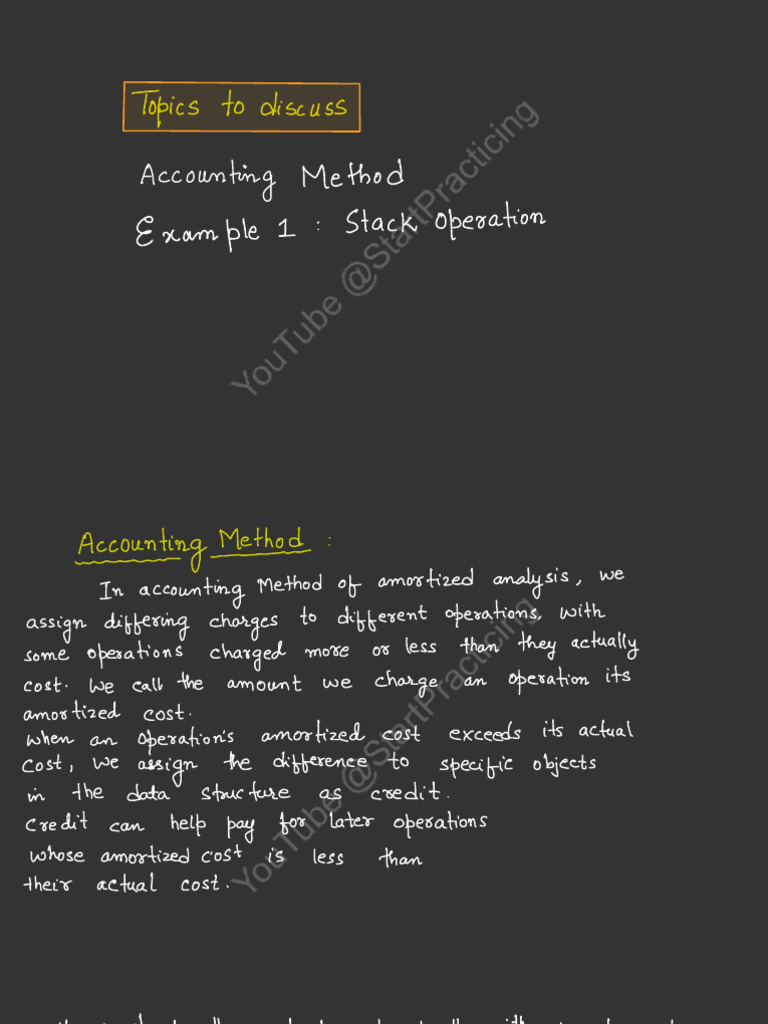 Topics to discuss
Accounting Method
Example 1 : Stack operation
YouTube @StartPracticing
Accounting Method :
In accounting Method of amortized analysis, we
assign differing charges to different operations, with
some operations charged more or less than they actually
cost. We call the amount we charge an operation its
amortized cost.
when an operation's amortized cost exceeds its actual
cost, we assign the difference to specific objects
in the data structure as credit.
credit can help pay for later operations
whose amortized cost is less than
their actual cost.
YouTube @StartPracticing